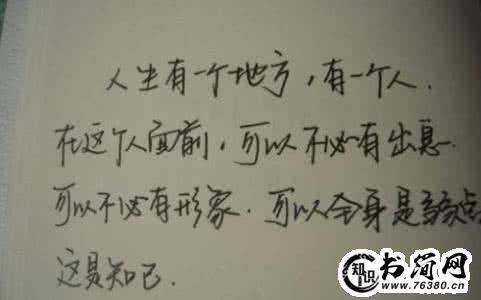 人生有一个地方,有一个人.
在这个人面前,可以不必有出息.
可以不必有形象.可以全身是缺点
这是知己.
知识
书简网
www.76380.cn